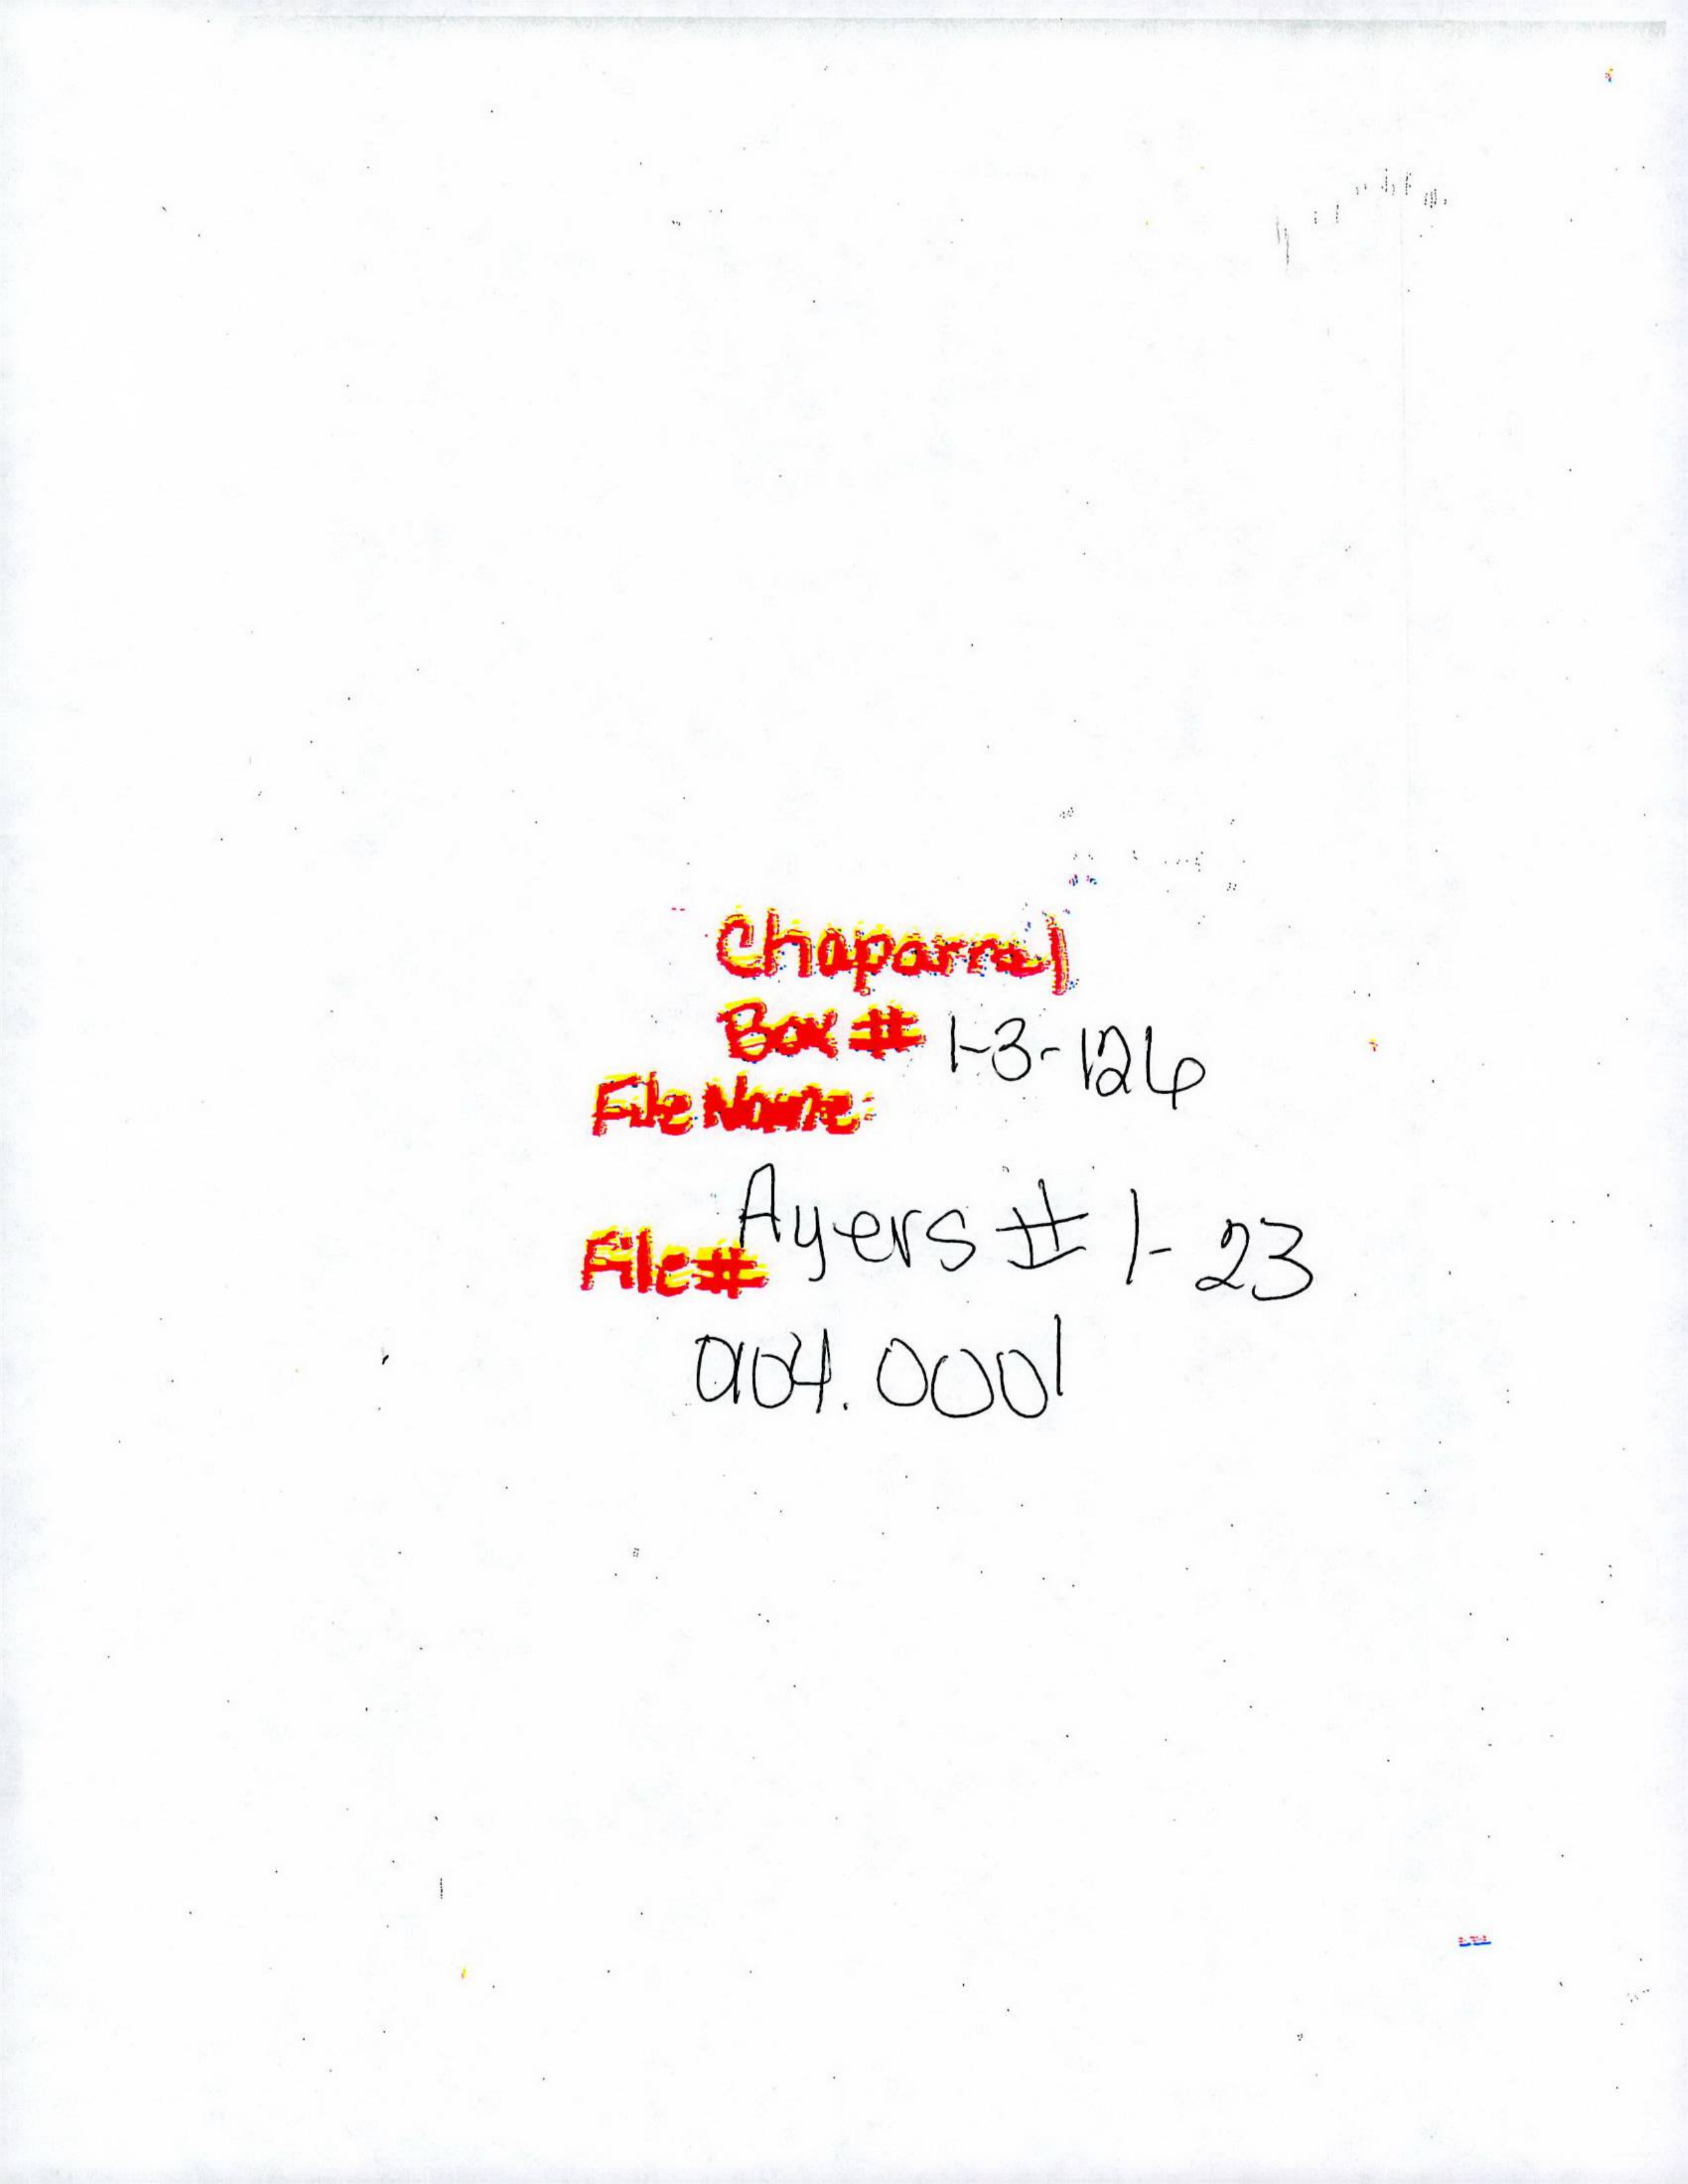 Chaparral
Box # 1-3-126
File Name:
Ayers # 1-23
File#
0104.0001